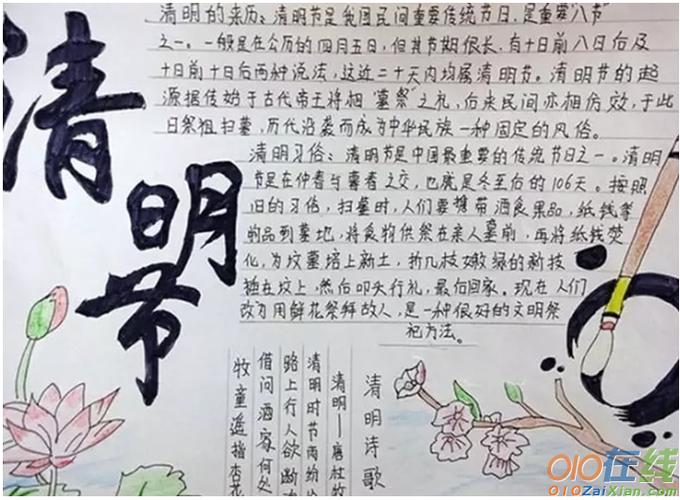 清明节
清明的来历:清明节是我国民间重要传统节日,是重要"八节"
之一。一般是在公历的四月五日,但其节期很长,有十日前八日后及
十日前十日后两种说法,这近二十天内均属清明节。清明节的起
源据传始于古代帝王将相"墓祭"之礼,后来民间亦相仿效,于此
日祭祖扫墓,历代沿袭而成为中华民族一种固定的风俗。
清明习俗:清明节是中国最重要的传统节日之一。清明
节是在仲春与暮春之交,也就是冬至后的106天。按照
旧的习俗,扫墓时,人们要携带酒食果品,纸钱等
物品到墓地,将食物供祭在亲人墓前,再将纸钱焚
化,为坟墓培上新土,折几枝嫩绿的新枝
插在坟上,然后叩头行礼,最后回家。现在人们
改为用鲜花祭拜故人,是一种很好的文明祭
祀方法。
清明诗歌
清明——唐杜牧
清明时节雨纷
路上行人欲断
借问酒家何处
牧童遥指杏花
010在线
010ZaiXian.com